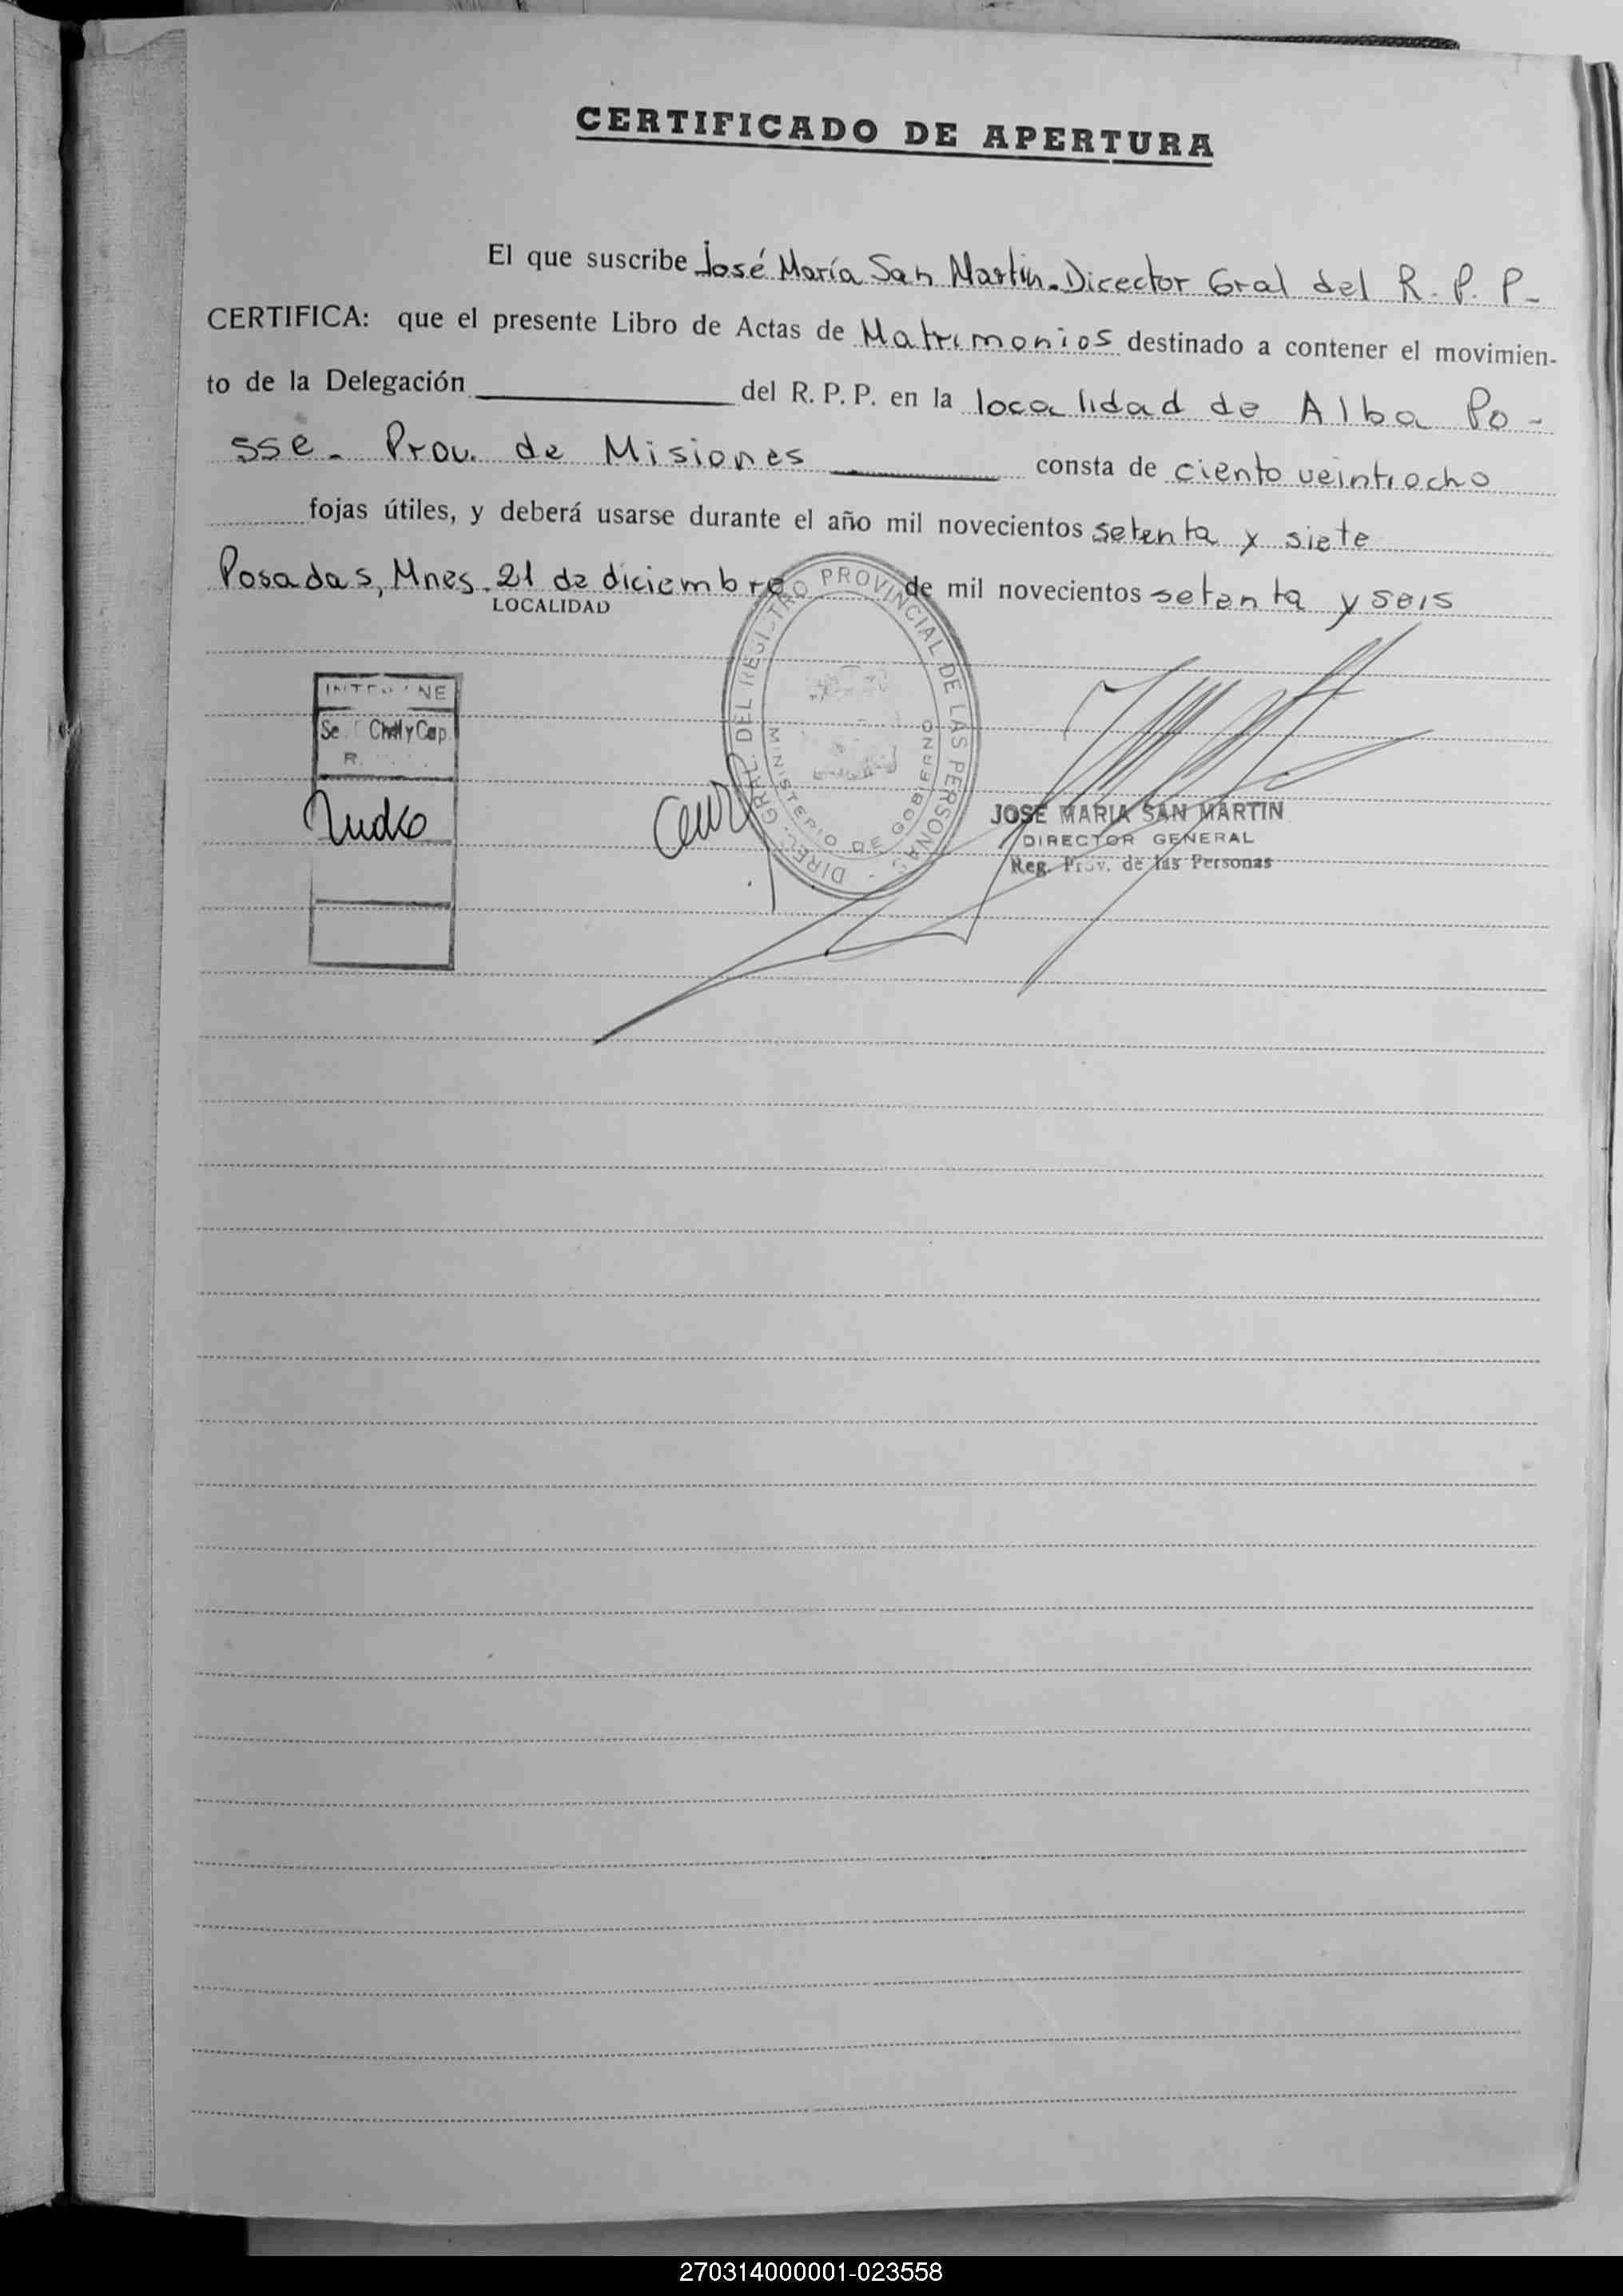 CERTIFICADO DE APERTURA
El que suscribe José María San Martín. Director Gral del R. P. P-
CERTIFICA: que el presente Libro de Actas de Matrimonios destinado a contener el movimien-
to de la Delegación del R. P. P. en la localidad de Alba Po-
sse. Prov. de Misiones consta de ciento veintiocho
fojas útiles, y deberá usarse durante el año mil novecientos setenta y siete
Posadas, Mnes. 21 de diciembre de mil novecientos setenta y seis
LOCALIDAD
DIREC. GRAL. DEL REGISTRO PROVINCIAL DE LAS PERSONAS
MINISTERIO DE GOBIERNO
Cap.
JOSE MARIA SAN MARTIN
DIRECTOR GENERAL
Reg. Prov. de las Personas
270314000001-023558